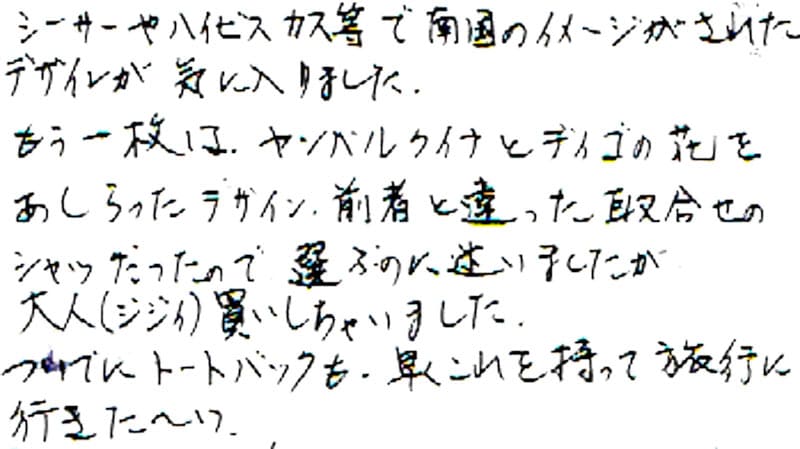 シーサーやハイビスカス等で南国のイメージがされた
デザインが気に入りました.
もう一枚は、ヤンバルクイナとデイゴの花を
あしらったデザイン、前者と違った取合せの
シャツだったので選ぶのに迷いましたが
大人(ジジイ)買いしちゃいました.
ついでにトートバックも、早くこれを持って旅行に
行きた〜い?